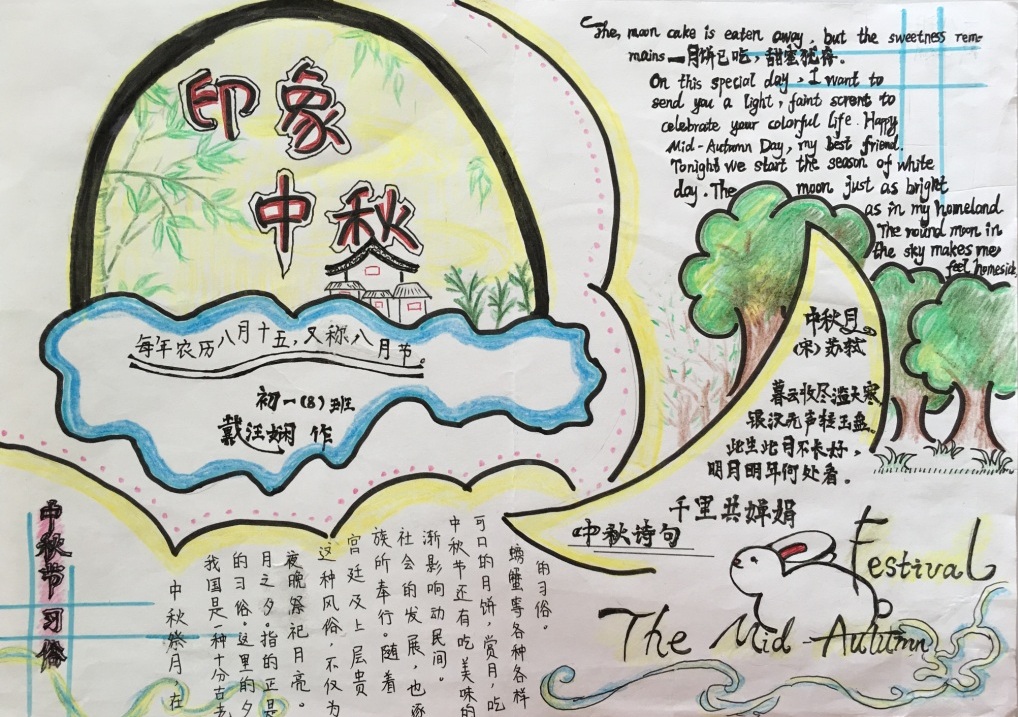 印象
中秋
每年农历八月十五，又称八月节。
初一（8）班
戴汪娴 作
The moon cake is eaten away, but the sweetness rem-
mains — 月饼已吃，甜蜜犹存。
On this special day, I want to
send you a light, faint scrent to
celebrate your colorful life. Happy
Mid-Autumn Day, my best friend.
Tonight we start the season of white
day. The moon just as bright
as in my homeland
The round moon in
the sky makes me
feel homesick.
中秋月
（宋）苏轼
暮云收尽溢天寒
银汉无声转玉盘。
此生此月不长好，
明月明年何处看。
千里共婵娟
中秋诗句
Festival
The Mid-Autumn
中秋节习俗
中秋祭月，在
我国是一种十分古老
的习俗。这里的夕
月之夕。指的正是
夜晚祭祀月亮。
这种风俗，不仅为
宫廷及上层贵
族所奉行。随着
社会的发展，也逐
渐影响动民间。
中秋节还有吃美味的
可口的月饼，赏月，吃
螃蟹等各种各样
的习俗。